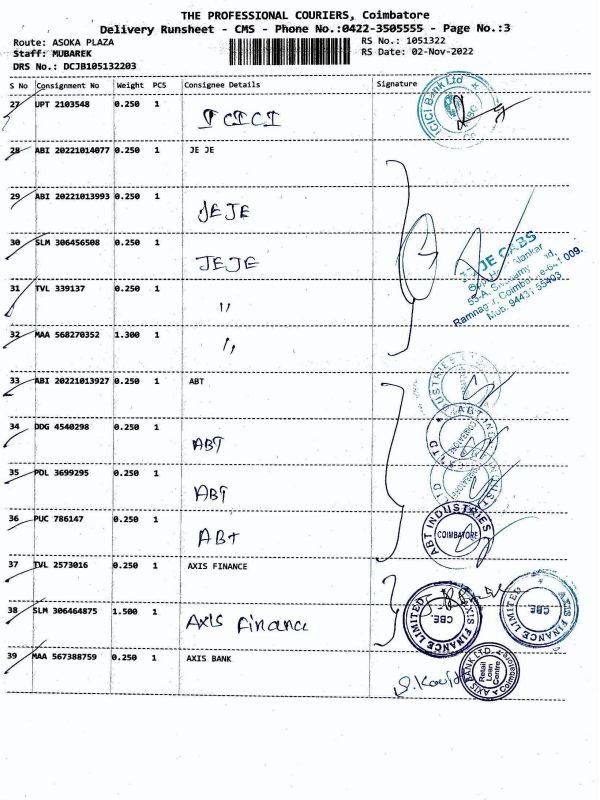 THE PROFESSIONAL COURIERS, Coimbatore
Delivery Runsheet - CMS - Phone No.:0422-3505555 - Page No.:3
Route: ASOKA PLAZA RS No.: 1051322
Staff: MUBAREK RS Date: 02-Nov-2022
DRS No.: DCJB105132203
S No Consignment No Weight PCS Consignee Details Signature
27 UPT 2103548 0.250 1 ICICI
ICICI Bank Ltd
28 ABI 20221014077 0.250 1 JE JE
29 ABI 20221013993 0.250 1 JEJE
30 SLM 306456508 0.250 1 JEJE
JE CABS
53-A,
Ramnagar, Coimbatore-641 009.
Mob. 94431 55403
31 TVL 339137 0.250 1 "
32 MAA 568270352 1.300 1 "
33 ABI 20221013927 0.250 1 ABT
34 DDG 4540298 0.250 1 ABT
35 POL 3699295 0.250 1 ABT
36 PUC 786147 0.250 1 ABT
ABT INDUSTRIES
COIMBATORE
37 TVL 2573016 0.250 1 AXIS FINANCE
38 SLM 306464875 1.500 1 Axis Finance
AXIS FINANCE LIMITED
CBE.
AXIS FINANCE LIMITED
CBE.
39 MAA 567388759 0.250 1 AXIS BANK
AXIS BANK LTD.
Retail
Loan
Centre